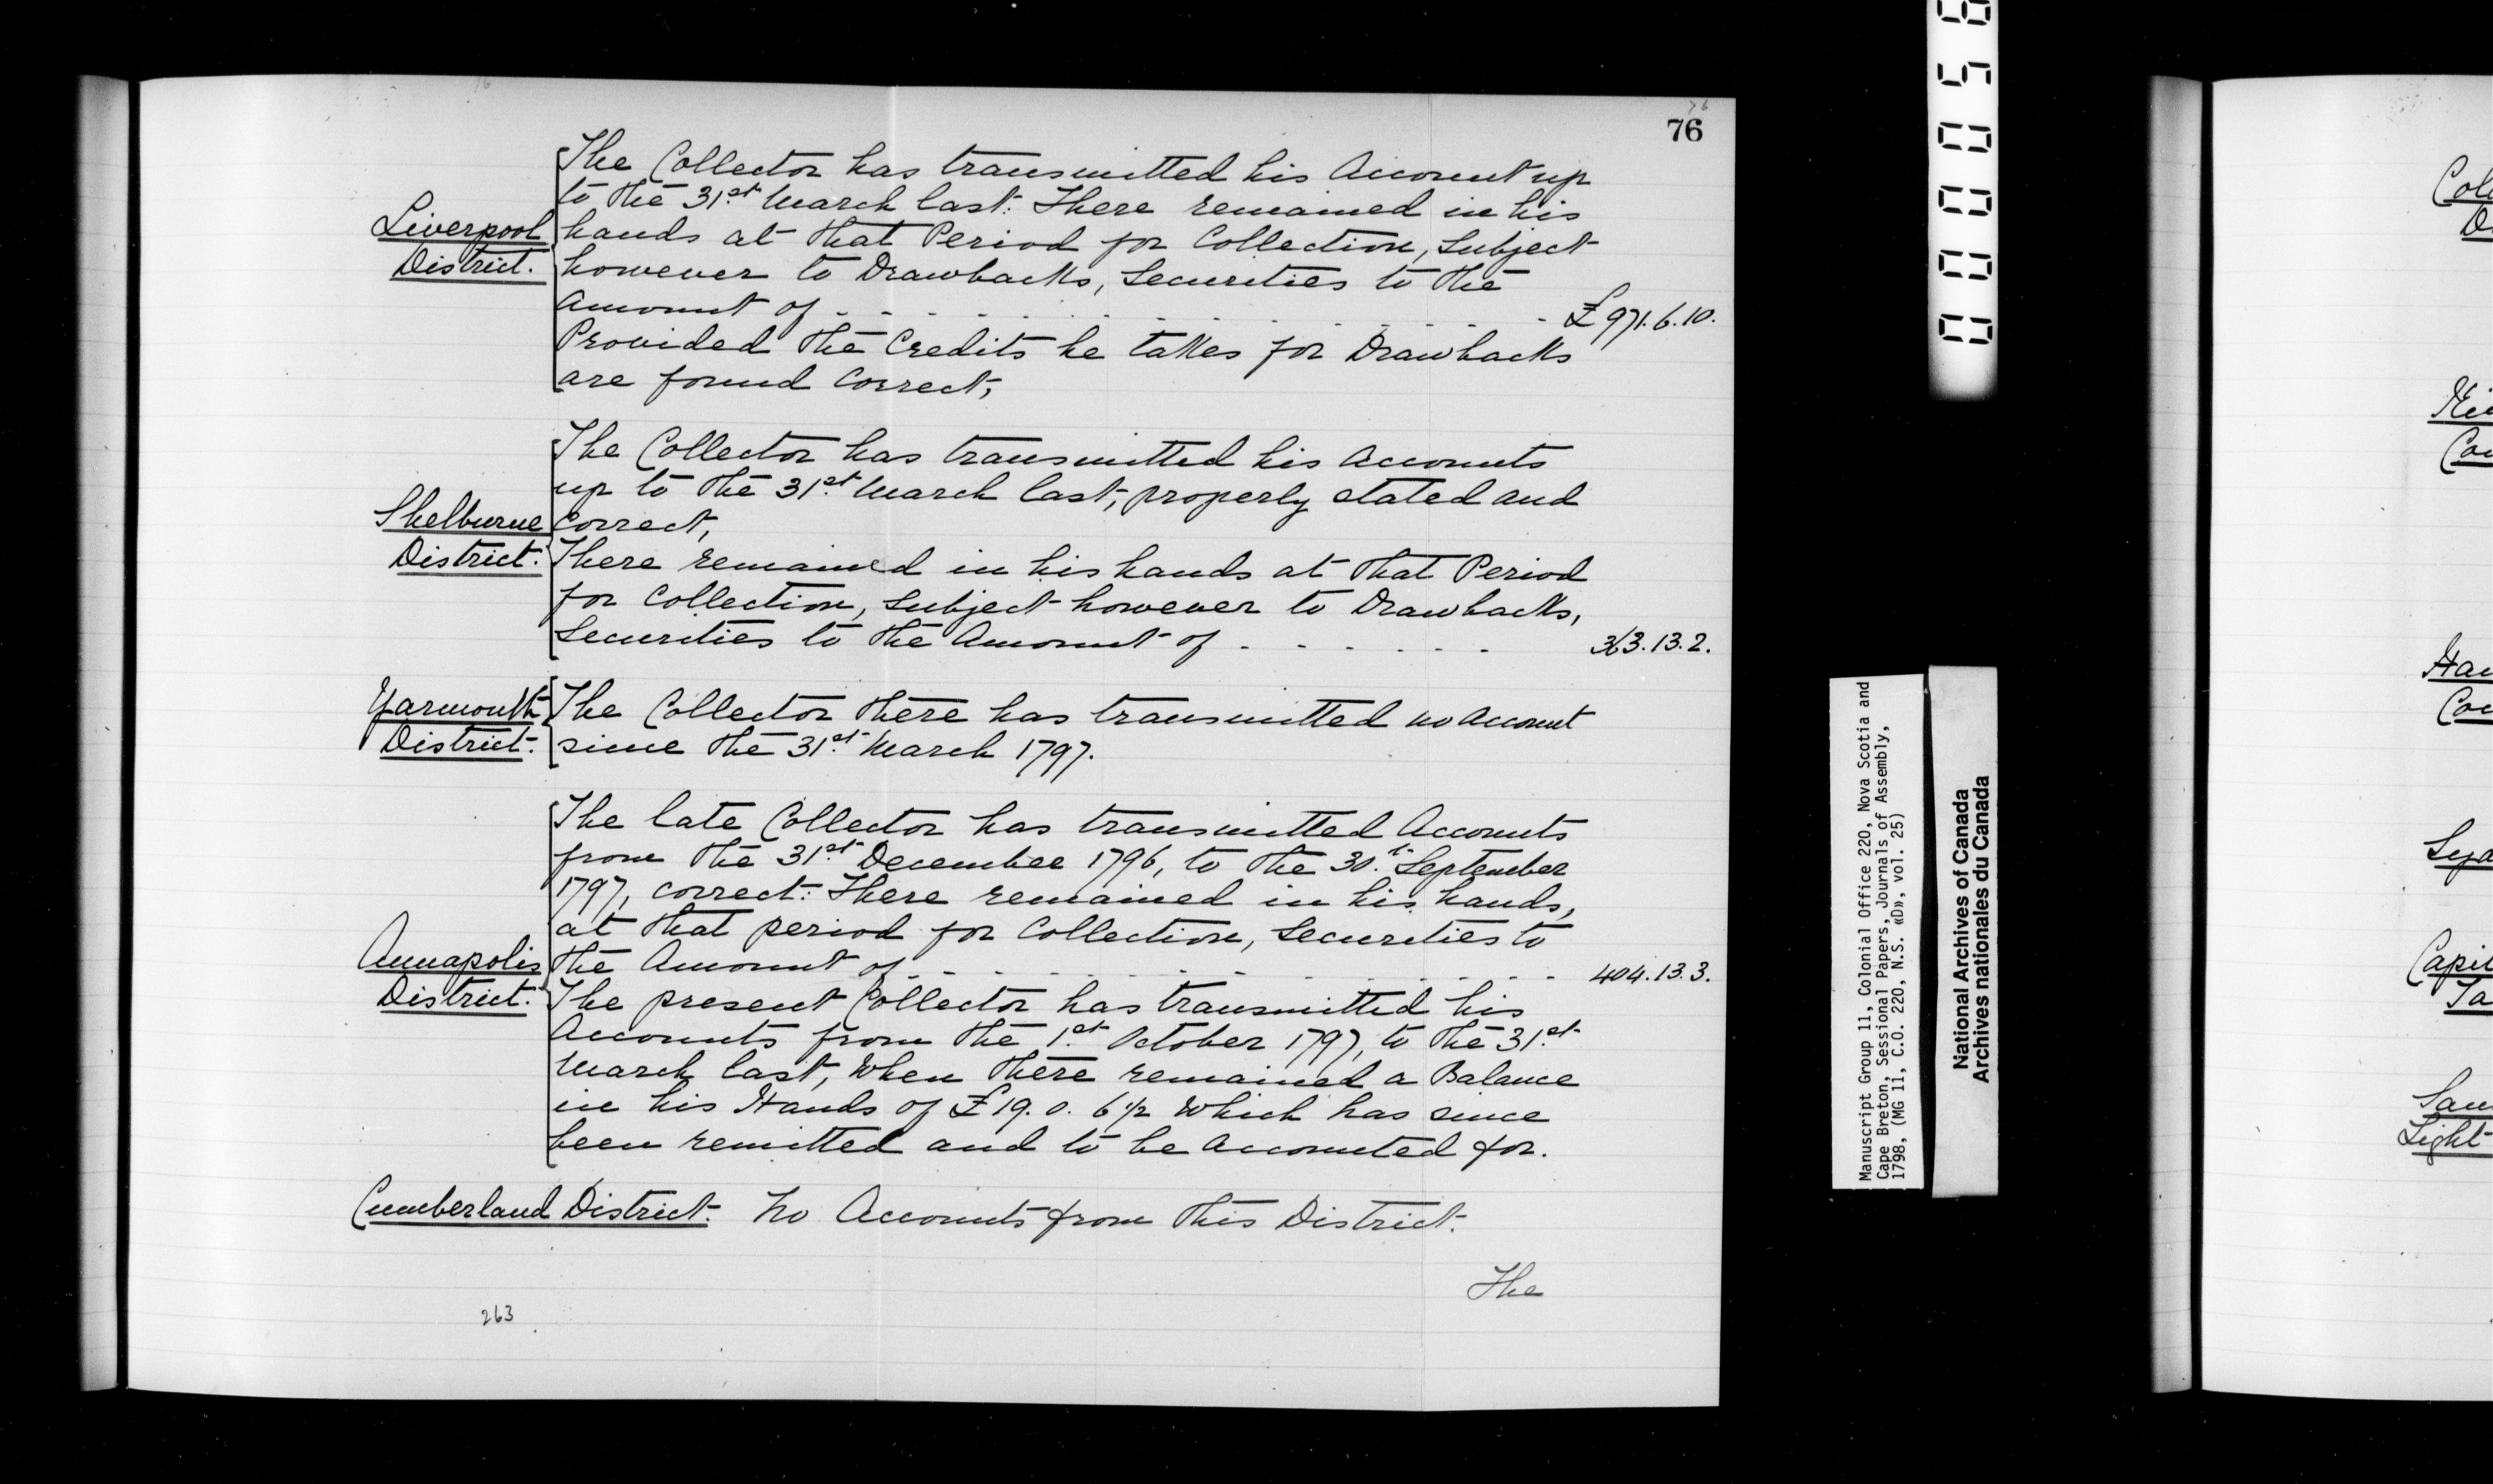 76
76
The Collector has transmitted his Account up
to the 31st March last: There remained in his
Liverpool hands at that Period for Collection, Subject
District. however to Drawbacks, Securities to the
Amount of - - - - - - - - - - - - £971.6.10.
Provided the Credits he takes for Drawbacks
are found Correct,
The Collector has transmitted his Accounts
up to the 31st March last, properly stated and
Shelburne Correct,
District. There remained in his hands at that Period
for Collection, Subject however to Drawbacks,
Securities to the Amount of - - - - - - 13.2.
Yarmouth The Collector there has transmitted no Account
District. since the 31st March 1797.
The late Collector has transmitted Accounts
from the 31st December 1796, to the 30th September
1797, correct: There remained in his hands,
at that period for Collection, Securities to
Annapolis the Amount of - - - - - - - - - - - - 404.13.3.
District. The present Collector has transmitted his
Accounts from the 1st October 1797, to the 31st
March last, When there remained a Balance
in his Hands of £19.0.6 1/2 Which has since
been remitted and to be Accounted for.
Cumberland District. No Accounts from this District.
The
263
Manuscript Group 11, Colonial Office 220, Nova Scotia and
Cape Breton, Sessional Papers, Journals of Assembly,
1798, (MG 11, C.O. 220, N.S. «D», vol. 25)
National Archives of Canada
Archives nationales du Canada